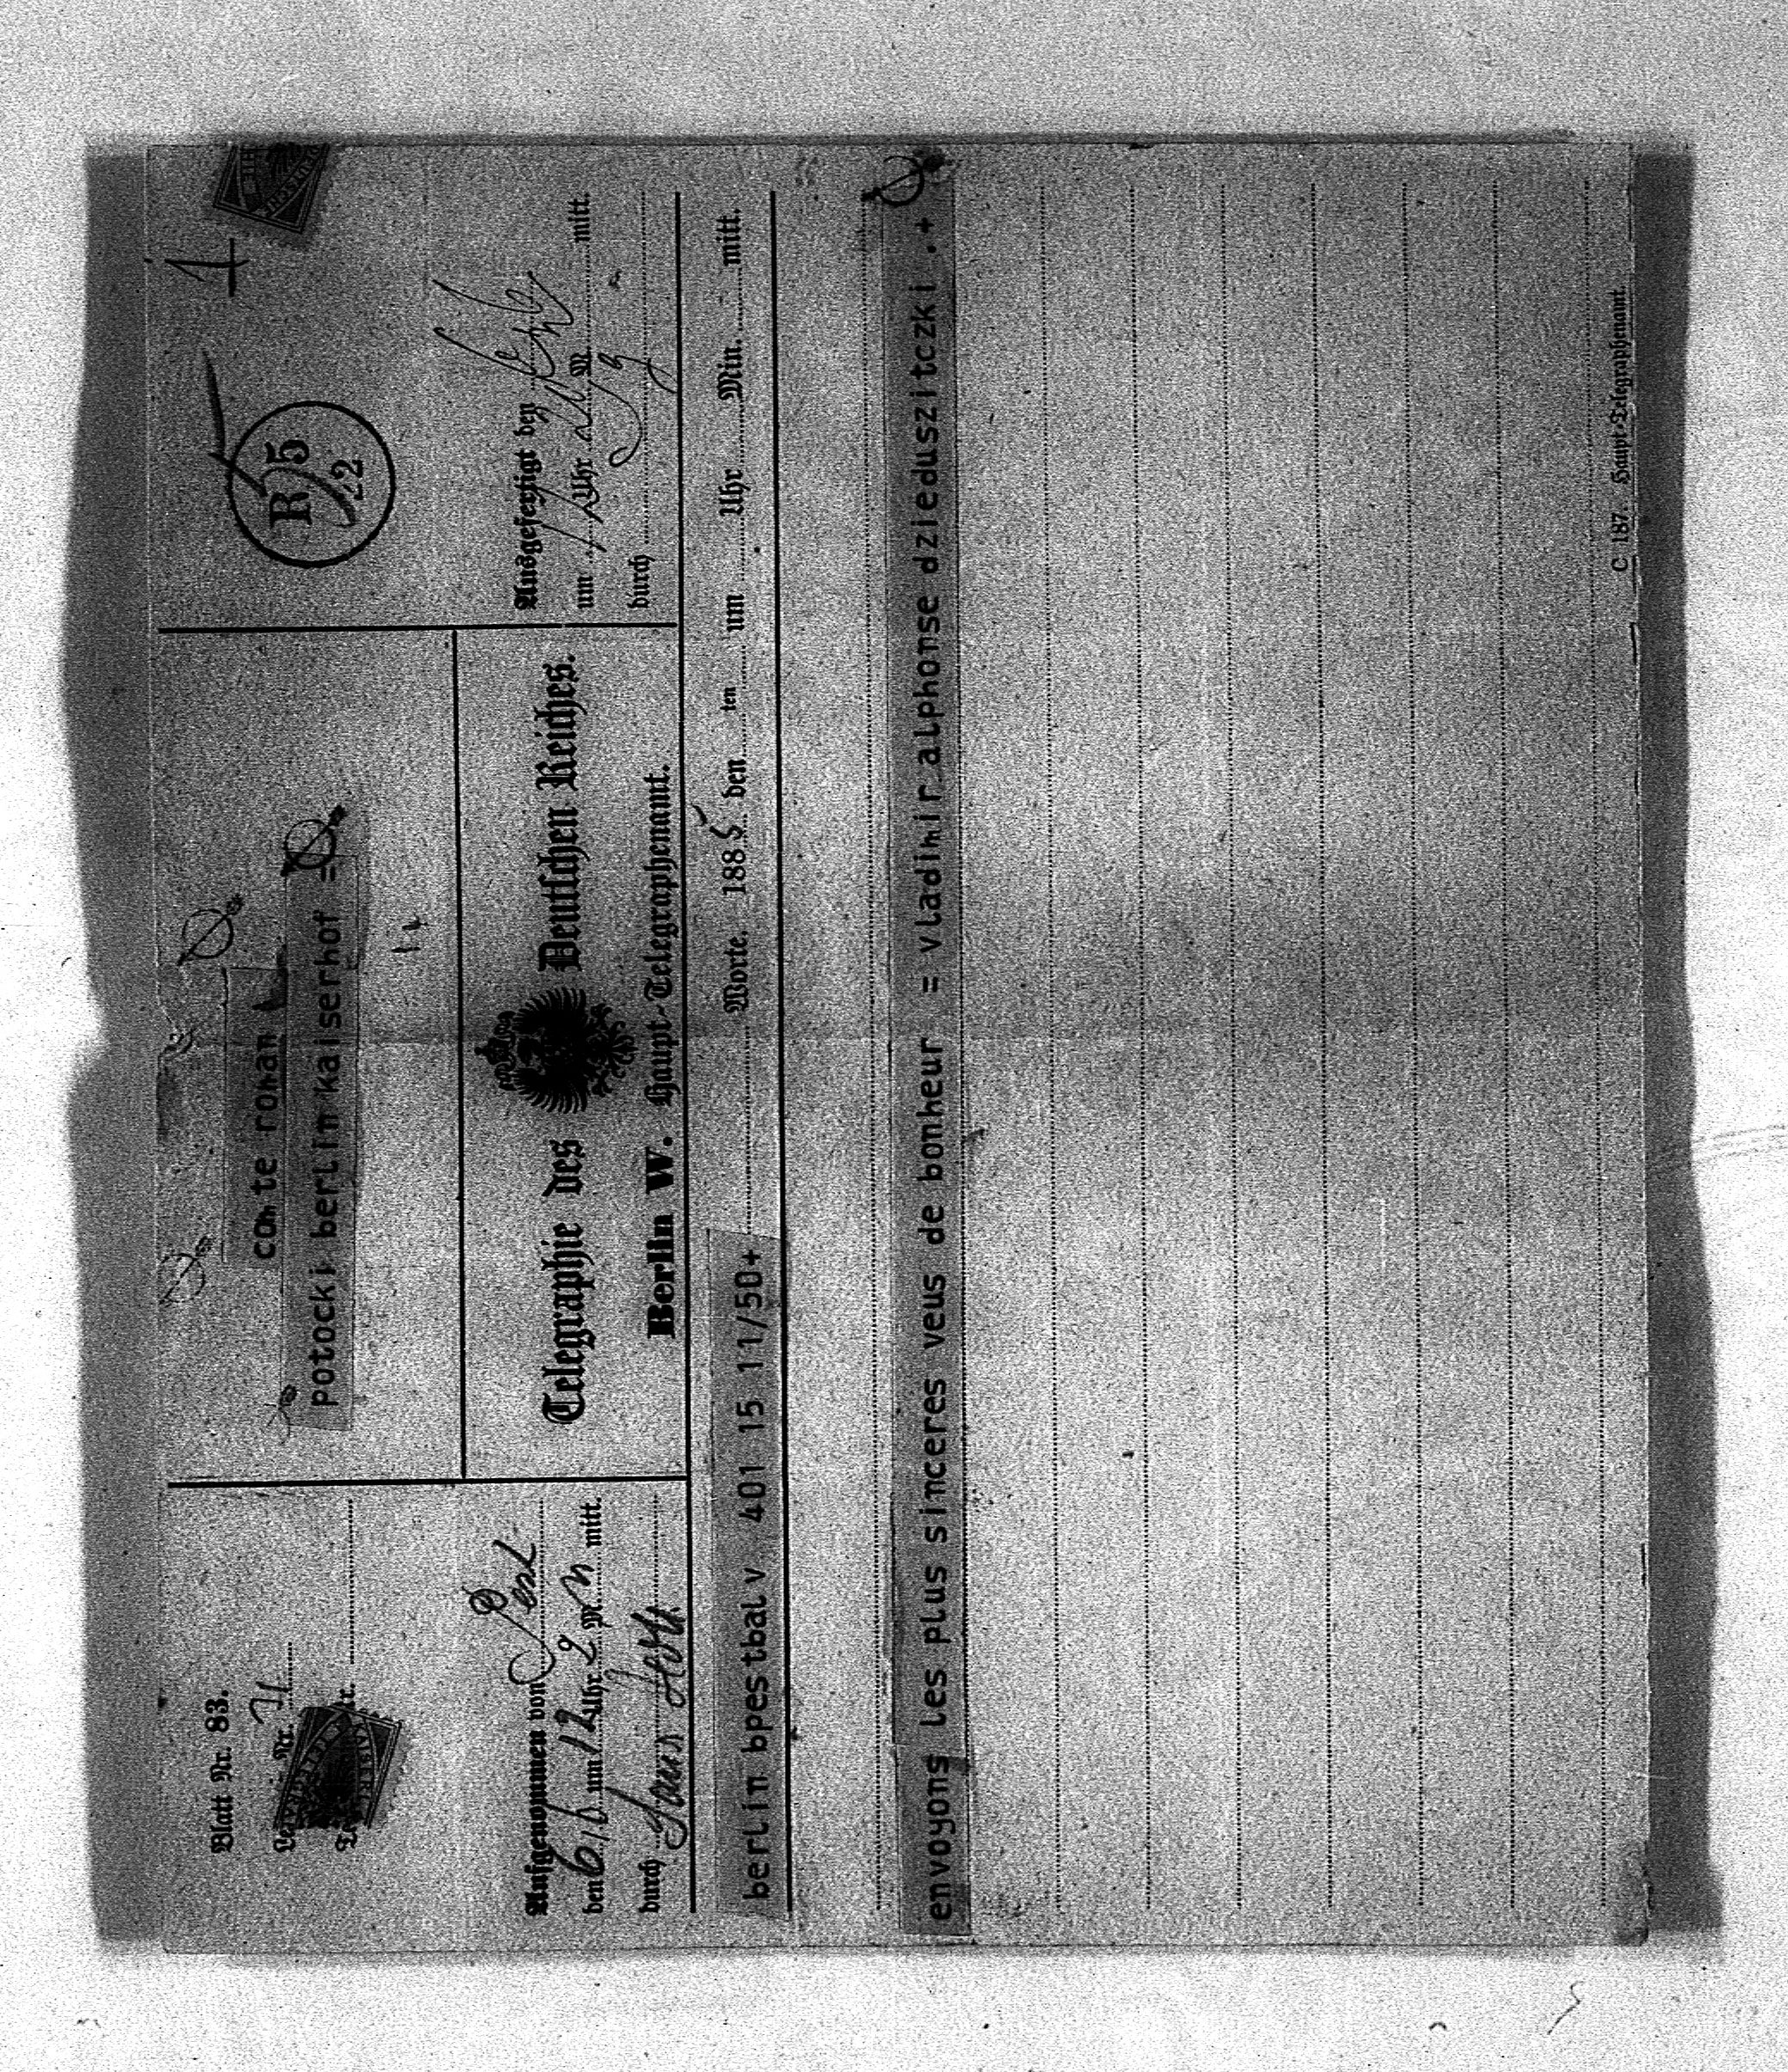 Blatt Nr. 83.
Nr. 71
comte roman
potocki berlin kaiserhof =
R 5
22
Aufgenommen von Pest
den 6/6 um 12 Uhr 2 M. N mitt.
durch
Telegraphie des Deutschen Reiches.
Berlin W. Haupt-Telegraphenamt.
Ausgefertigt den
um Uhr M. mitt.
durch
berlin bpestbalv 401 15 11/50+ Worte. 1885 den ten um Uhr Min. mitt.
envoyons les plus sinceres veus de bonheur = vladimir alphonse dzieduszitczki .+
C 187. Haupt-Telegraphenamt.